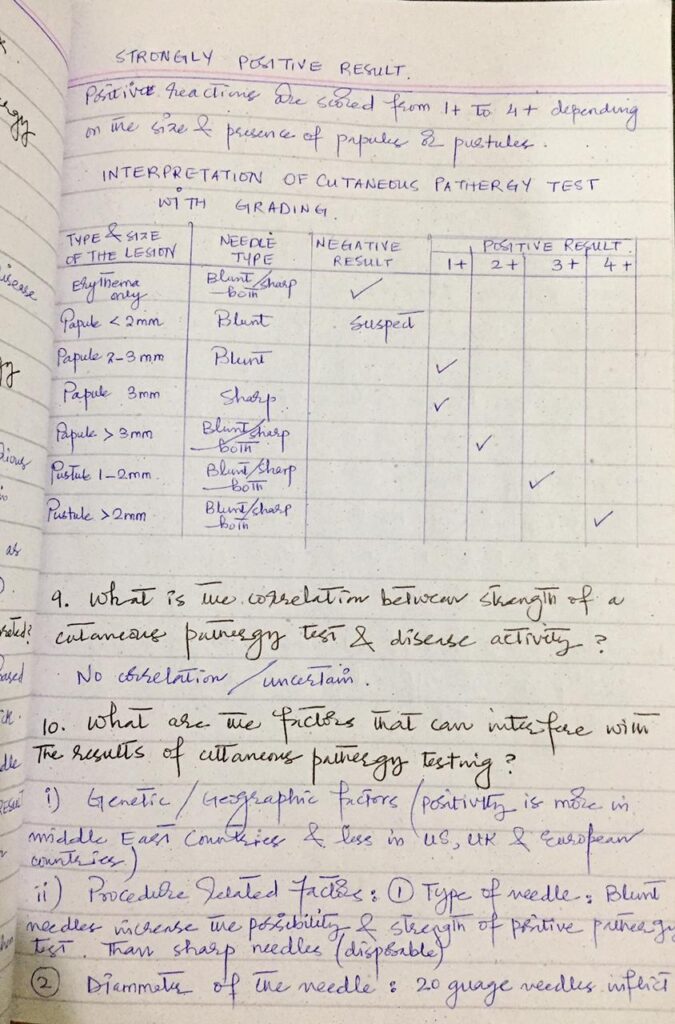 STRONGLY POSITIVE RESULT.
Positive reactions are scored from 1+ to 4+ depending
on the size & presence of papules & pustules.
INTERPRETATION OF CUTANEOUS PATHERGY TEST
WITH GRADING.
TYPE & SIZE OF THE LESION NEEDLE TYPE NEGATIVE RESULT POSITIVE RESULT
1+ 2+ 3+ 4+
Erythema only Blunt/sharp both ✓
Papule < 2mm Blunt Suspect
Papule 2-3mm Blunt ✓
Papule 3mm Sharp ✓
Papule > 3mm Blunt/sharp both ✓
Pustule 1-2mm Blunt/sharp both ✓
Pustule >2mm Blunt/sharp both ✓
9. What is the correlation between strength of a
cutaneous pathergy test & disease activity?
No correlation/uncertain.
10. What are the factors that can interfere with
the results of cuttaneous pathergy testing?
i) Genetic/Geographic factors (positivity is more in
middle East Countries & less in US, UK & European
countries)
ii) Procedure related factors: ① Type of needle: Blunt
needles increase the possibility & strength of positive pathergy
test. Than sharp needles (disposable)
② Diammeter of the needle: 20 guage needles inflict